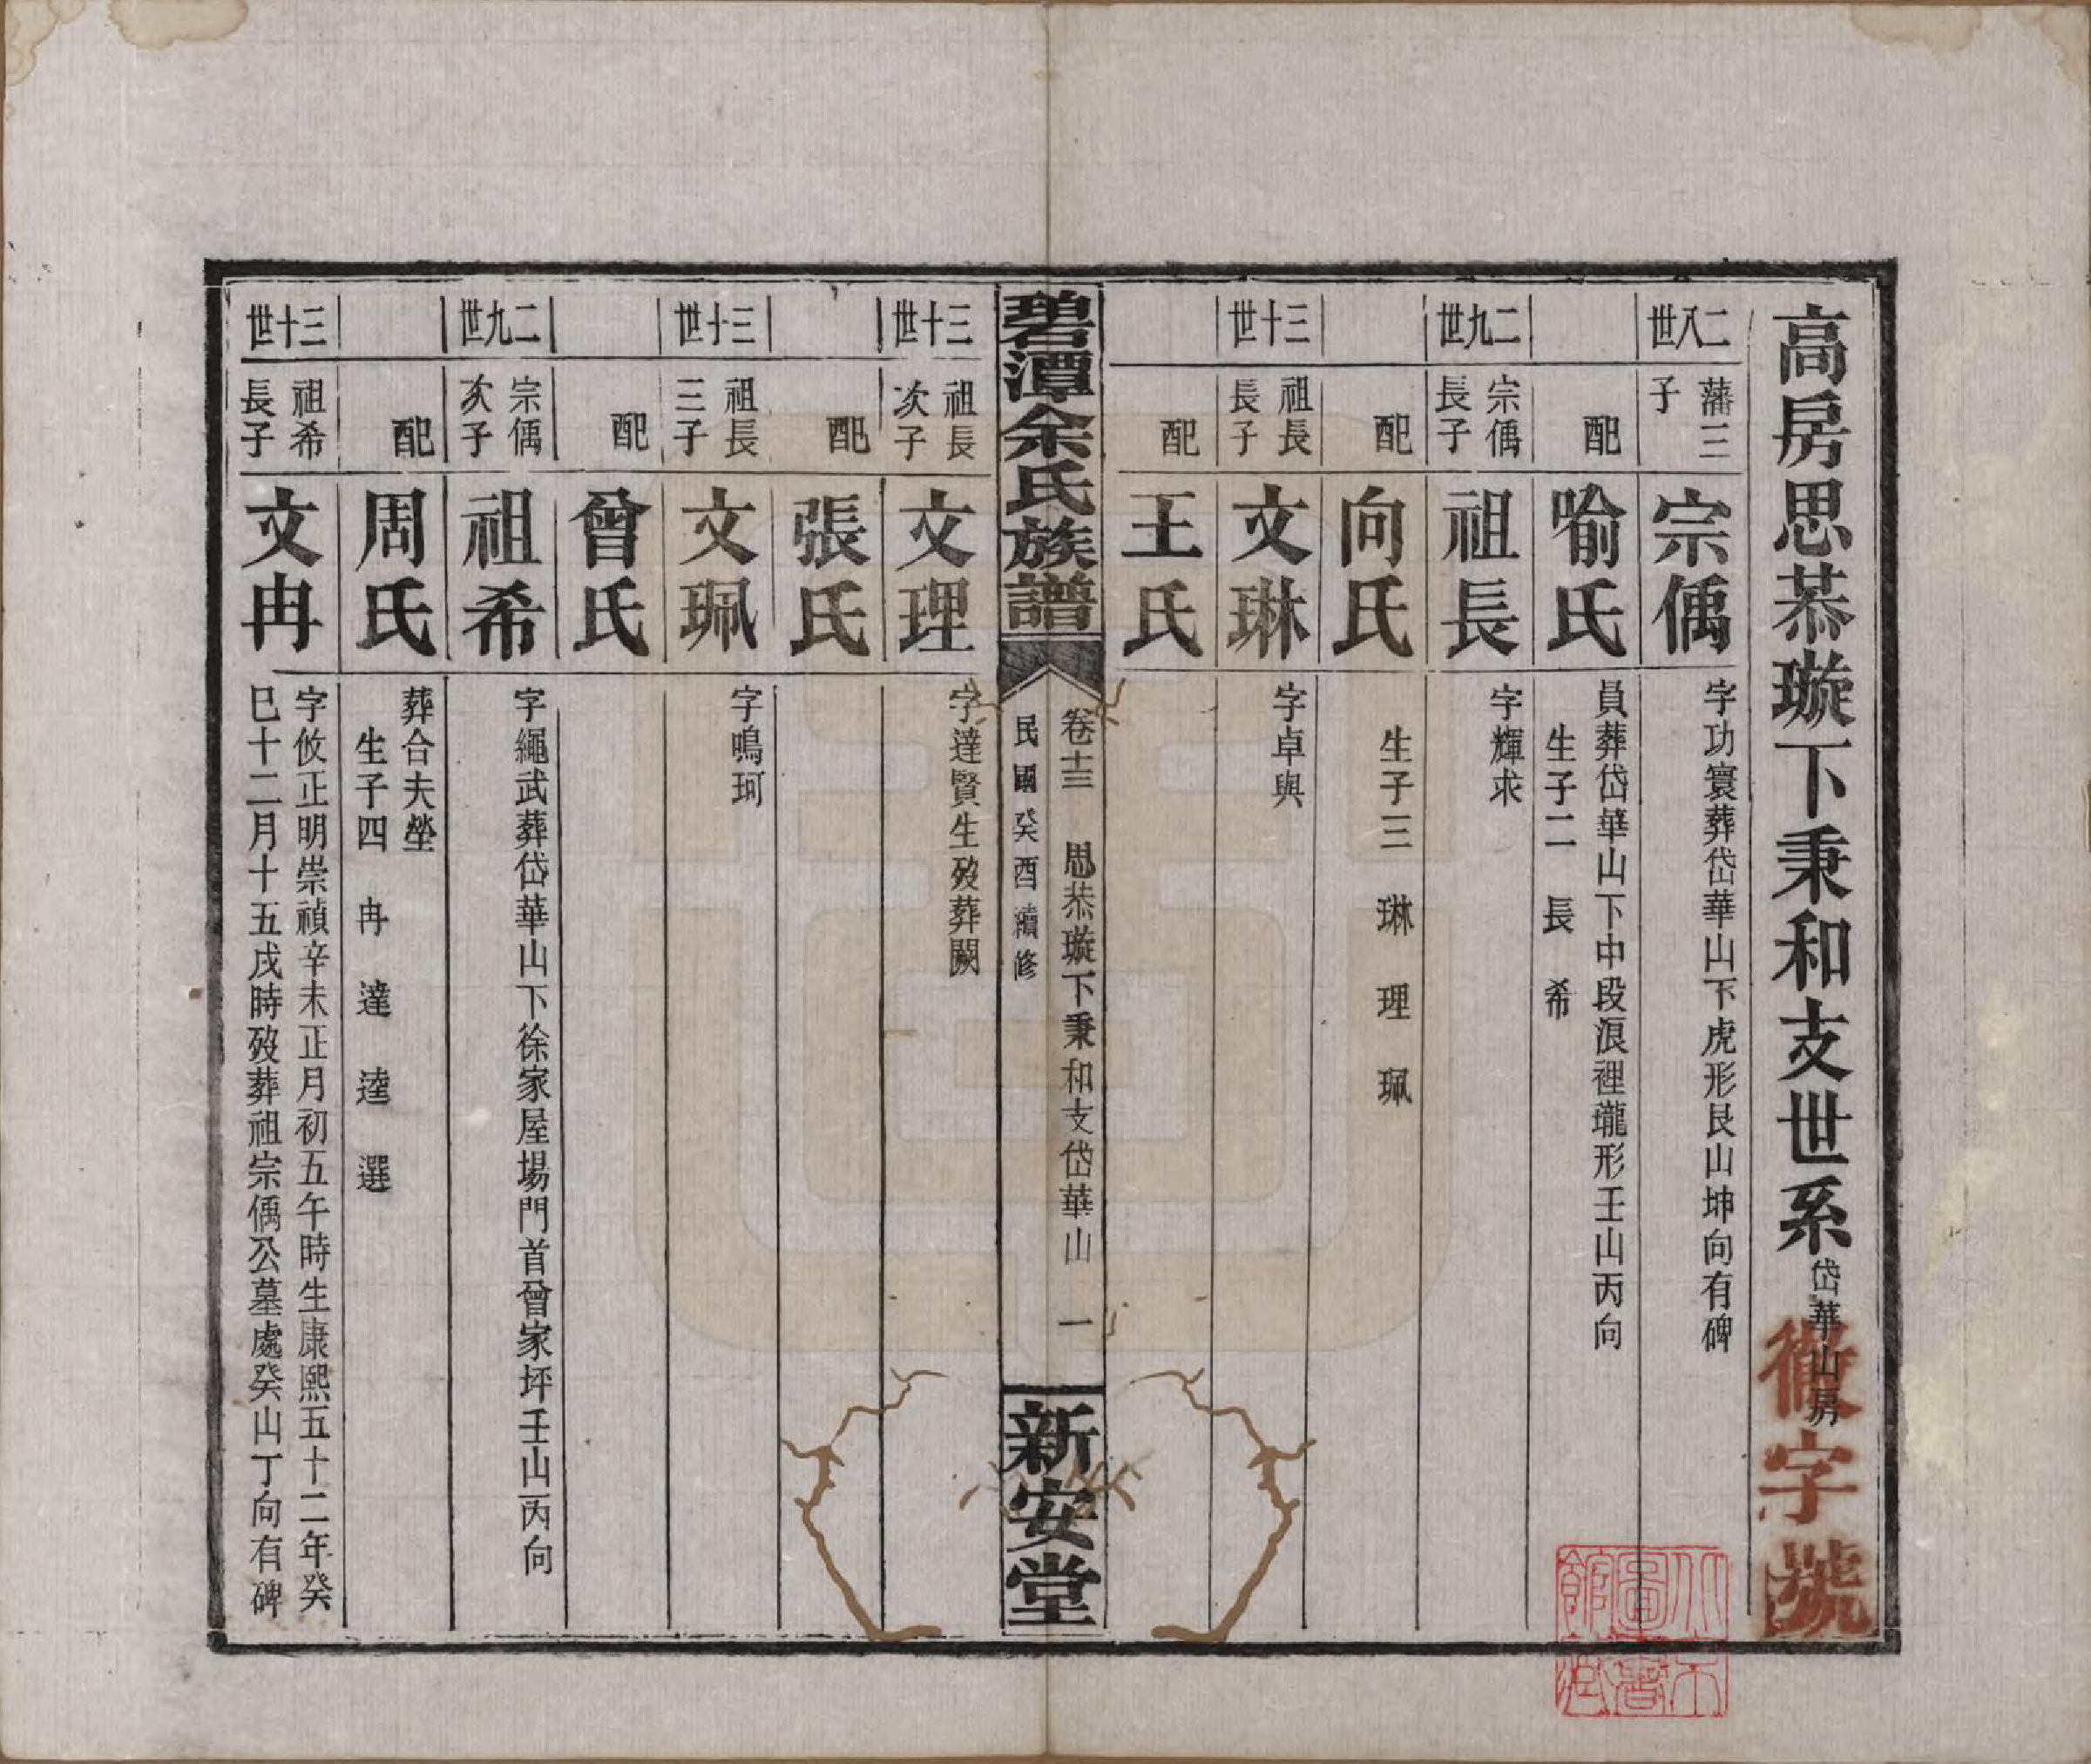 高房思恭璇下秉和支世系 岱華山房
徹字號
二八世 藩三子 宗偊 字功寰葬岱華山下虎形艮山坤向有碑
配 喻氏 員葬岱華山下中段浪裡瓏形壬山丙向
生子二 長 希
二九世 宗偊長子 祖長 字輝求
配 向氏 生子三 琳 理 珮
三十世 祖長長子 文琳 字卓與
配 王氏
碧潭余氏族譜 卷十三 思恭璇下秉和支岱華山 一
民國癸酉續修
新安堂
三十世 祖長次子 文理 字達賢生歿葬闕
配 張氏
三十世 祖長三子 文珮 字鳴珂
配 曾氏
二九世 宗偊次子 祖希 字繩武葬岱華山下徐家屋場門首曾家坪壬山丙向
配 周氏 葬合夫塋
生子四 冉 達 逵 選
三十世 祖希長子 文冉 字攸正明崇禎辛未正月初五午時生康熙五十二年癸
巳十二月十五戌時歿葬祖宗偊公墓處癸山丁向有碑